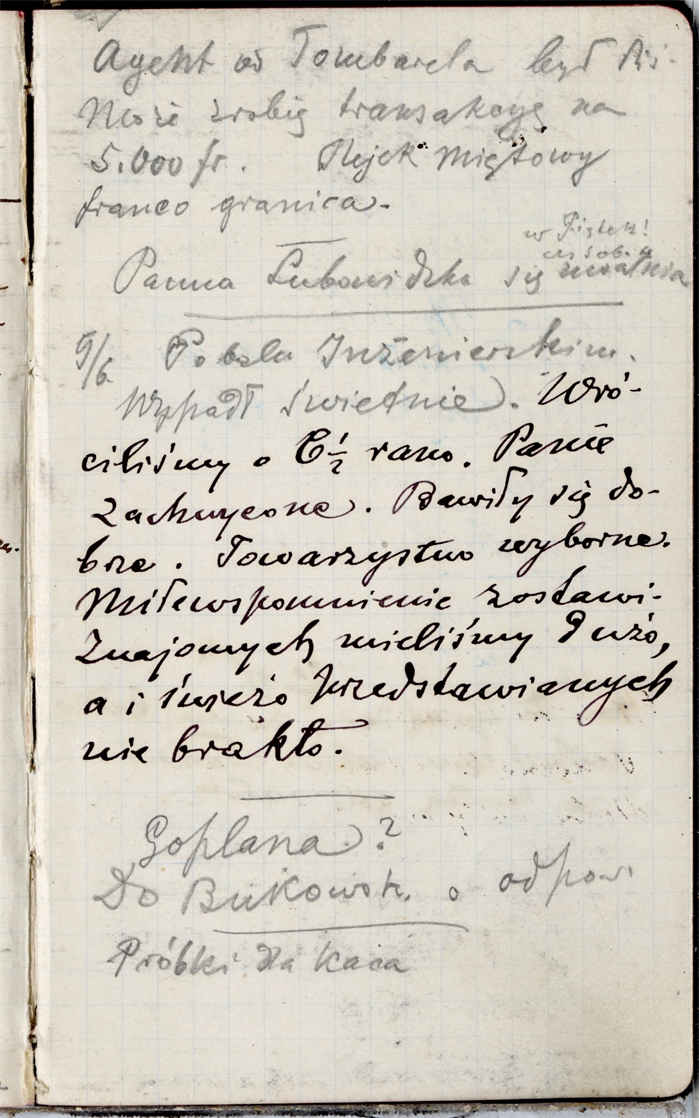 Agent od Tombarela był
Może zrobię transakcyę na
5.000 fr. Olejek miętowy
franco granica.
w Piątek!
Panna Lubowidzka się
9/6 Po balu Inżenierskim.
Wypadł świetnie. Wró-
ciliśmy o 6½ rano. Panie
zachwycone. Bawiły się do-
brze. Towarzystwo wyborne.
Miłe wspomnienie zostawi-
Znajomych mieliśmy dużo,
a i świeżo przedstawianych
nie brakło.
Goplana?
Do Bukowsk. o odpow
Próbki dla Kaca